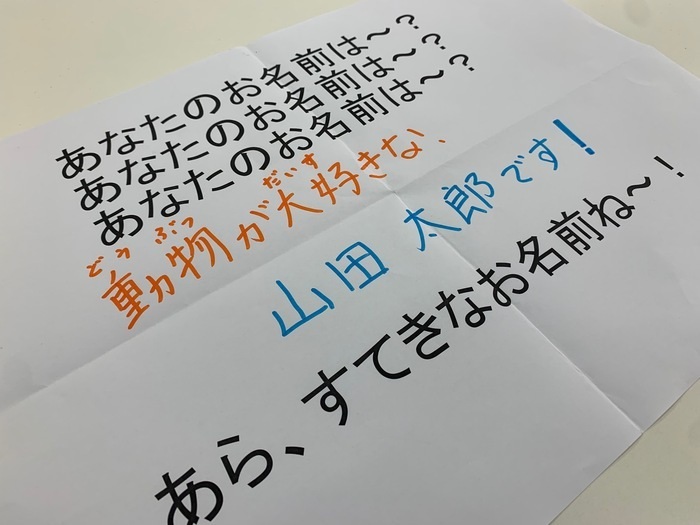 あなたのお名前は～？
あなたのお名前は～？
あなたのお名前は～？
どうぶつ だいす
動物が大好きな、
山田 太郎です！
あら、すてきなお名前ね～！